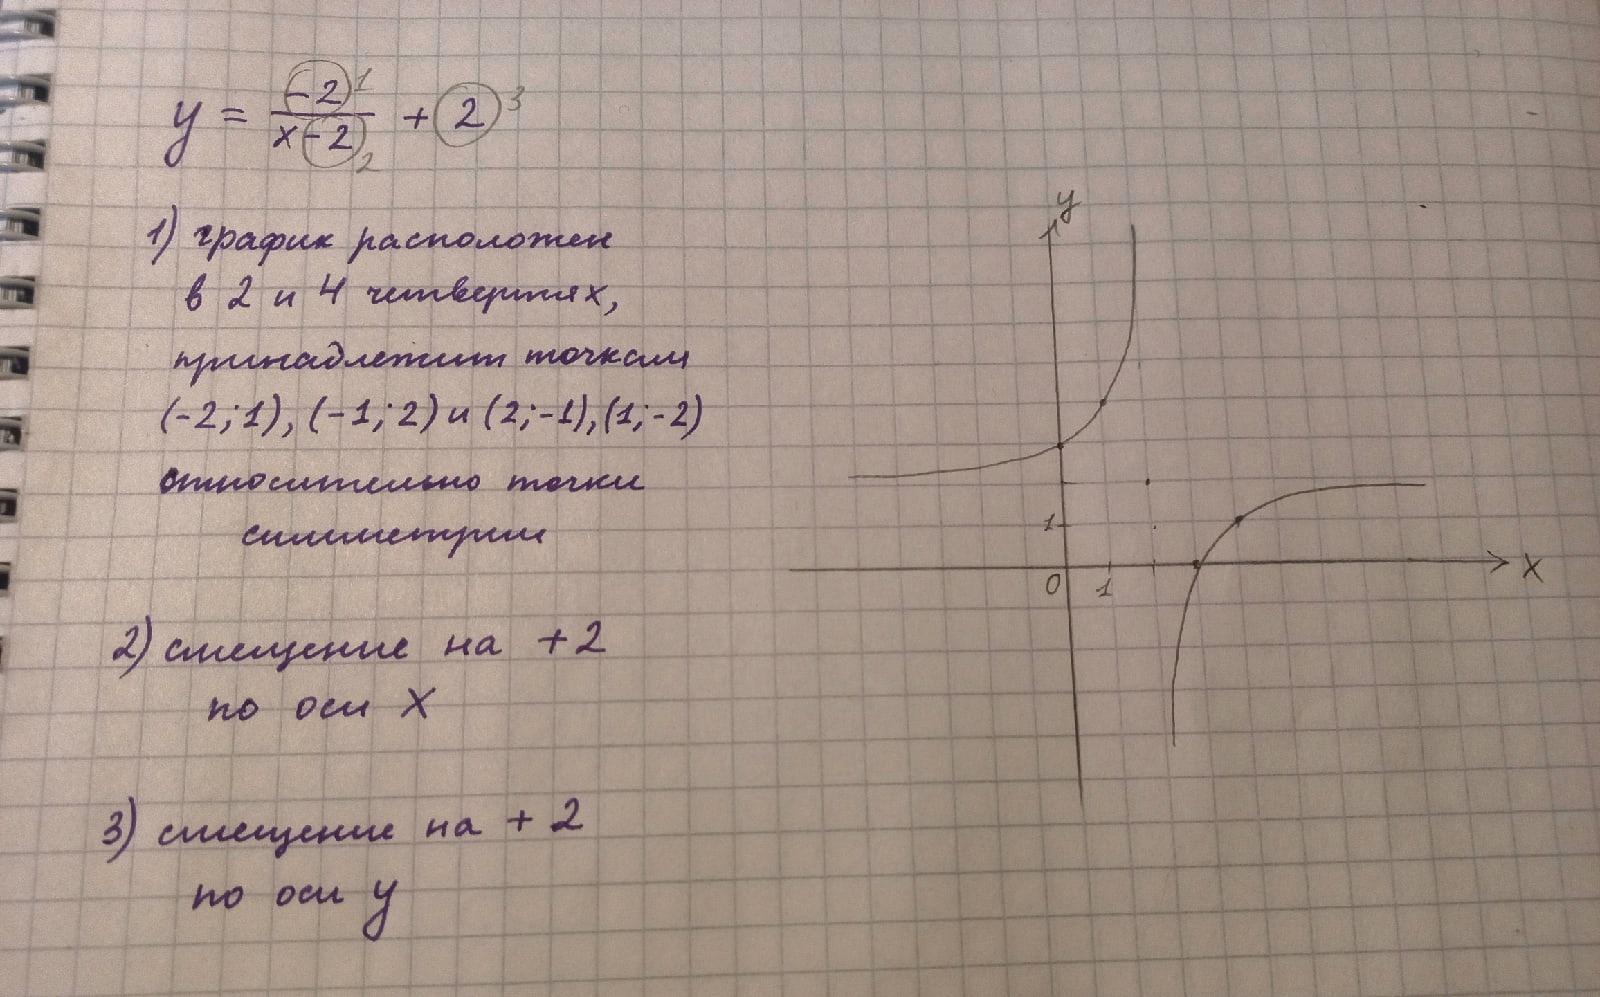 y = -2/(x-2) + 2
1 2 3
1) график расположен
в 2 и 4 четвертях,
принадлежит точкам
(-2;1), (-1;2) и (2;-1),(1;-2)
относительно точки
симметрии
2) смещение на +2
по оси X
3) смещение на +2
по оси y
y
1
0 1 X